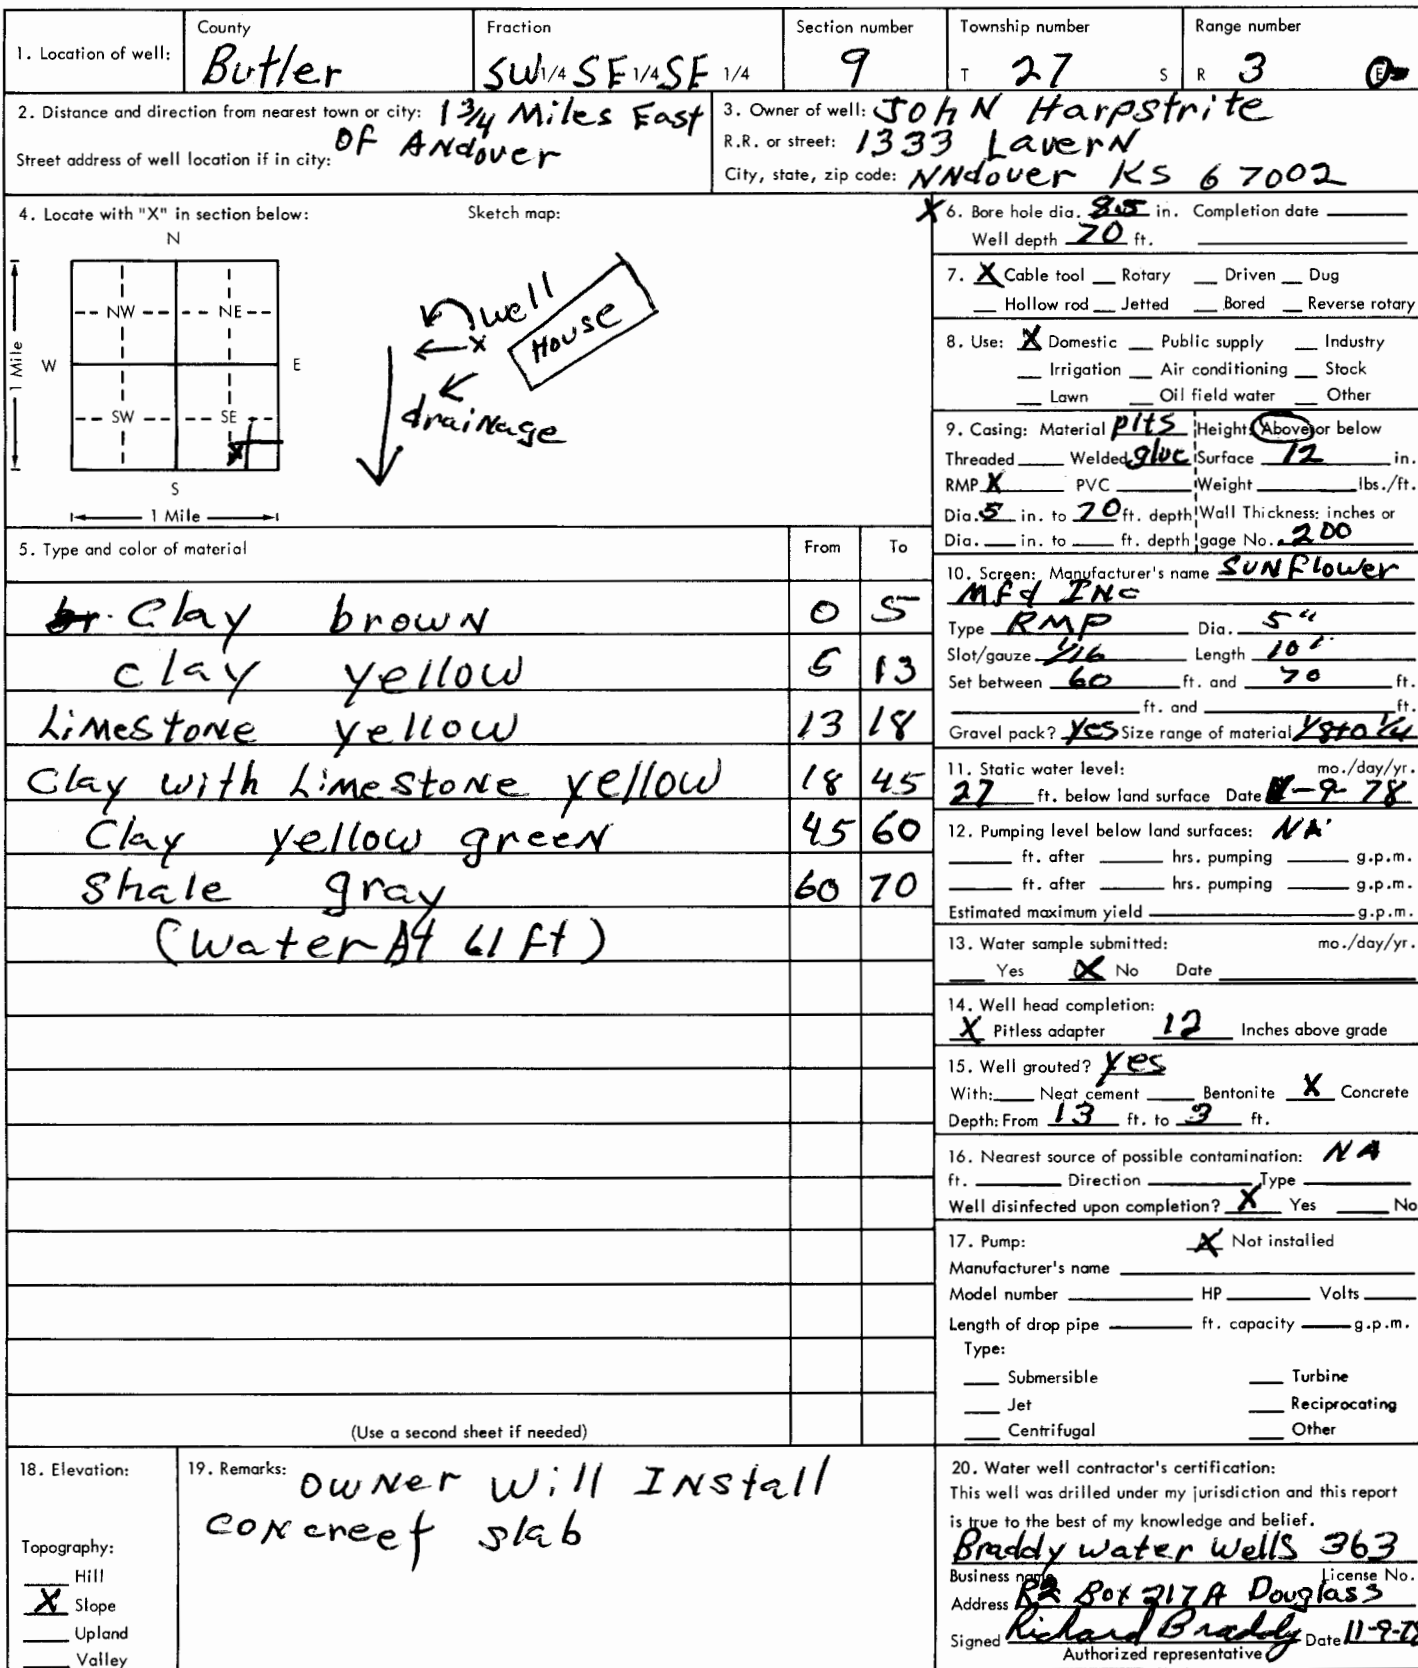 1. Location of well: County Butler Fraction SW 1/4 SE 1/4 SE 1/4 Section number 9 Township number T 27 S Range number R 3 E
2. Distance and direction from nearest town or city: 1 3/4 Miles East
OF ANdover
Street address of well location if in city:
3. Owner of well: JohN Harpstrite
R.R. or street: 1333 LaverN
City, state, zip code: NNdover KS 67002
4. Locate with "X" in section below:
N
NW NE
W E
SW SE
X
S
1 Mile
1 Mile
Sketch map:
well
X
House
drainage
5. Type and color of material From To
Clay brown 0 5
clay yellow 5 13
LimestoNe yellow 13 18
Clay with LimestoNe yellow 18 45
Clay yellow greeN 45 60
Shale gray 60 70
(Water At 61 ft)
(Use a second sheet if needed)
X 6. Bore hole dia. 8.5 in. Completion date
Well depth 70 ft.
7. X Cable tool Rotary Driven Dug
Hollow rod Jetted Bored Reverse rotary
8. Use: X Domestic Public supply Industry
Irrigation Air conditioning Stock
Lawn Oil field water Other
9. Casing: Material plts Height: Above or below
Threaded Welded glue Surface 12 in.
RMP X PVC Weight lbs./ft.
Dia. 5 in. to 70 ft. depth Wall Thickness: inches or
Dia. in. to ft. depth gage No. .200
10. Screen: Manufacturer's name SUNflower
Mfd INc
Type RMP Dia. 5"
Slot/gauze 1/16 Length 10'
Set between 60 ft. and 70 ft.
ft. and ft.
Gravel pack? Yes Size range of material 1/8 to 1/4
11. Static water level: mo./day/yr.
27 ft. below land surface Date -9-78
12. Pumping level below land surfaces: NA
ft. after hrs. pumping g.p.m.
ft. after hrs. pumping g.p.m.
Estimated maximum yield g.p.m.
13. Water sample submitted: mo./day/yr.
Yes X No Date
14. Well head completion:
X Pitless adapter 12 Inches above grade
15. Well grouted? Yes
With: Neat cement Bentonite X Concrete
Depth: From 13 ft. to 3 ft.
16. Nearest source of possible contamination: NA
ft. Direction Type
Well disinfected upon completion? X Yes No
17. Pump: X Not installed
Manufacturer's name
Model number HP Volts
Length of drop pipe ft. capacity g.p.m.
Type:
Submersible Turbine
Jet Reciprocating
Centrifugal Other
18. Elevation:
Topography:
Hill
X Slope
Upland
Valley
19. Remarks: OWNer Will INstall
coNcreet slab
20. Water well contractor's certification:
This well was drilled under my jurisdiction and this report
is true to the best of my knowledge and belief.
Braddy water wells 363
Business name License No.
Address R2 Box 217A Douglass
Signed Richard Braddy Date 11-9-78
Authorized representative